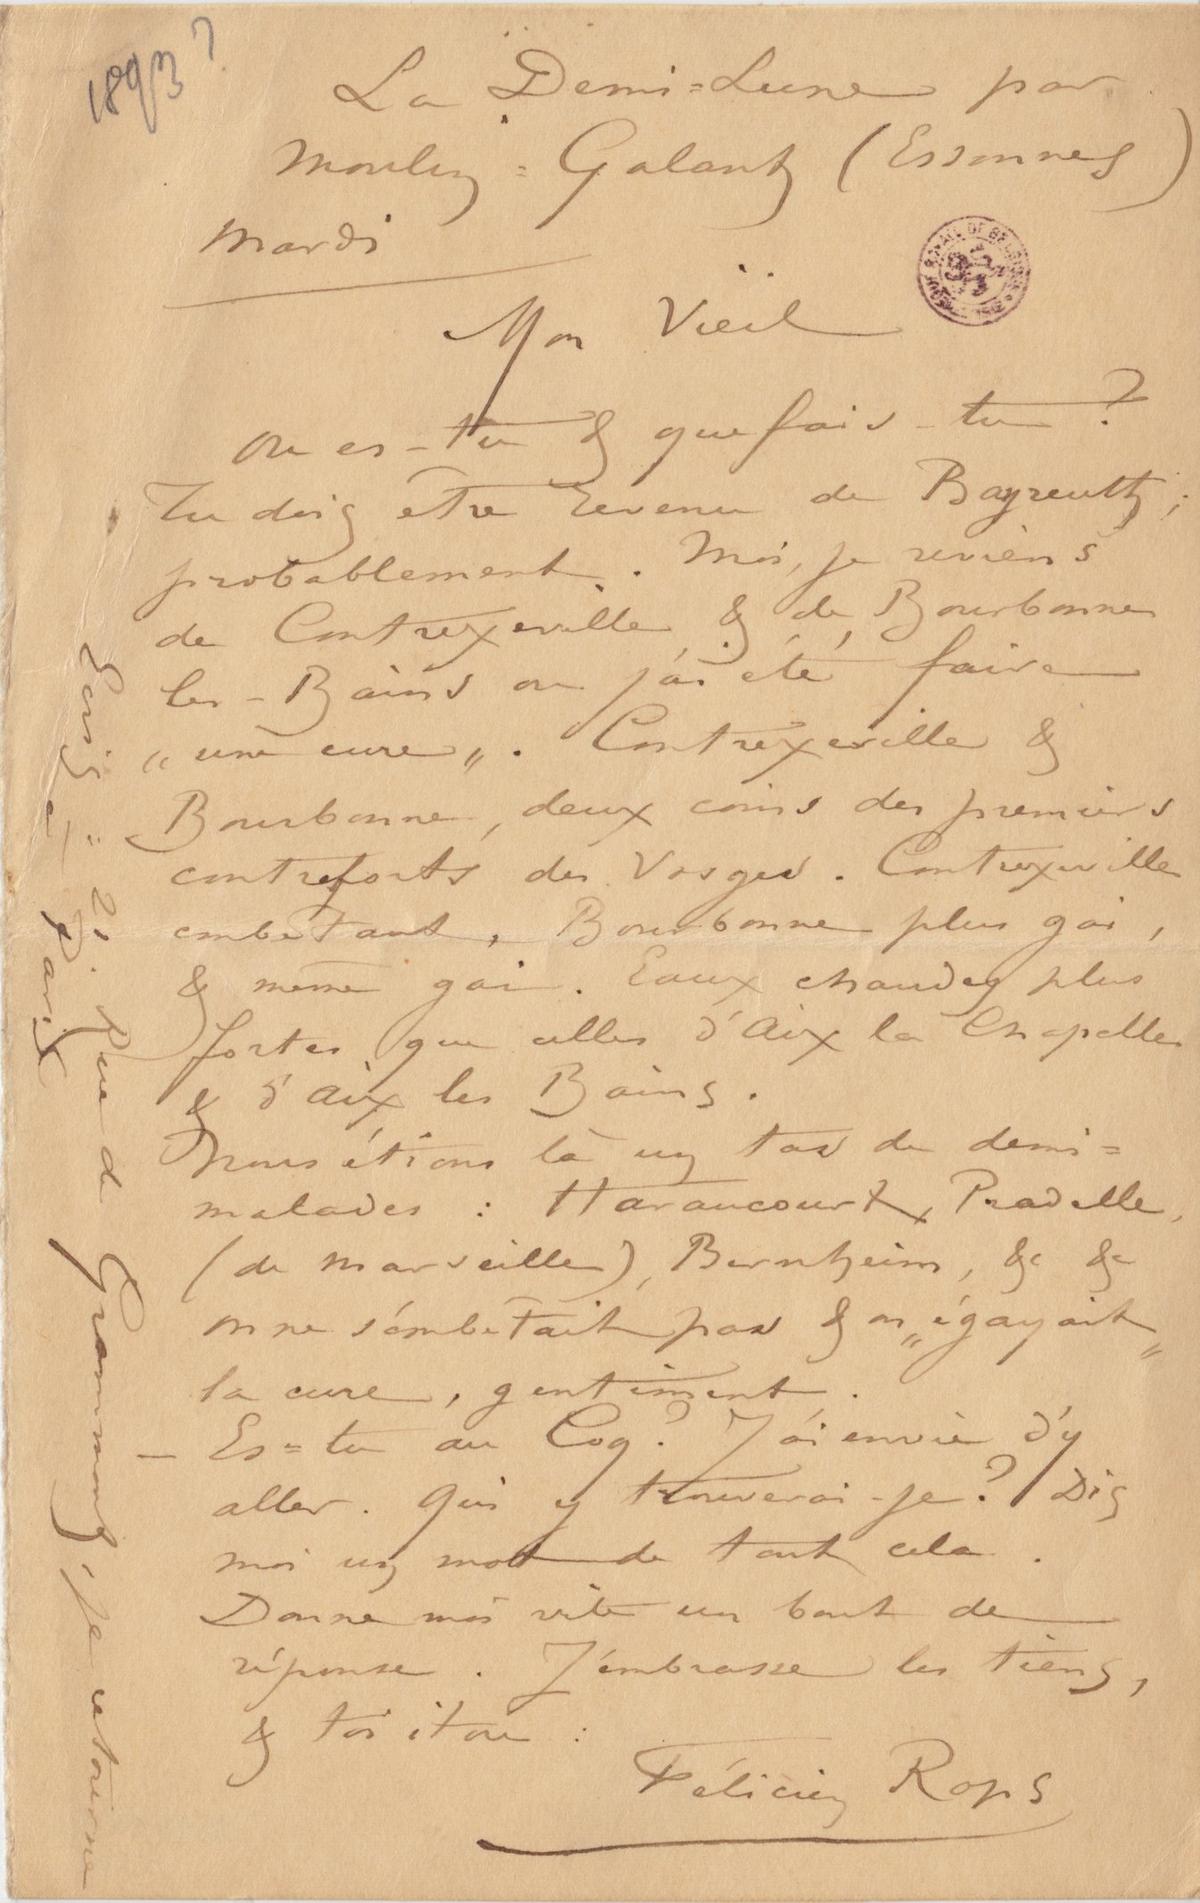 1893 ?
La Demi=Lune par
Moulin=Galant (Essonnes)
Mardi
Mon Vieil
Ou es-tu & que fais-tu ?
Tu dois être revenu de Bayreuth ;
probablement. Moi, je reviens
de Contrexeville & de Bourbonne
les-Bains ou j'ai été faire
„ une cure „. Contrexeville &
Bourbonne, deux coins des premiers
contreforts des Vosges. Contrexeville
embêtant, Bourbonne plus gai,
& même gai. Eaux chaudes plus
fortes que celles d'Aix la Chapelle
& d'Aix les Bains.
Nous étions là un tas de demi=
malades : Harancourt, Pradelle,
(de Marseille), Bernheim, &c &c
on ne s'embêtait pas & on „égayait„
la cure, gentiment.
— Es=tu au Coq ? J'ai envie d'y
aller. Qui y trouverai-je ? Dis
moi un mot de tout cela.
Donne moi vite un bout de
réponse. J'embrasse les tiens,
& toi itou :
Félicien Rops
Ecris = 21. Rue de Grammont, je retourne
à Paris